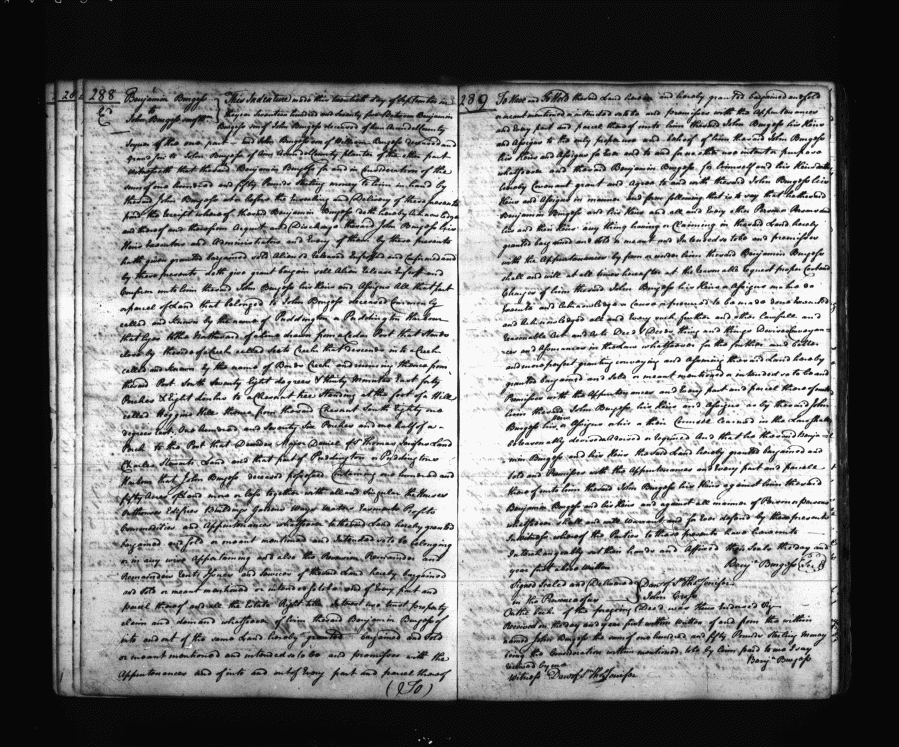 288
Benjamin Burgess
to
John Burgess
This Indenture made this twentieth day of September in
the year Seventeen hundred and twenty four Between Benjamin
Burgess son of John Burgess deceased of Ann Arundel County
of the one part and John Burgess son of William Burgess deceased and
grandson to John Burgess of Ann Arundel County planter of the other part
Witnesseth that the said Benjamin Burgess for and in Consideration of the
sume of one hundred and fifty Pounds Sterling money to him in hand by
the said John Burgess at or before the Ensealing and Delivery of these presents
paid the receipt whereof the said Benjamin Burgess doth hereby acknowledge
and thereof and therefrom Acquit and Discharge the said John Burgess his
Heirs Executors and Administrators and Every of them by these presents
hath given granted bargained sold Aliened Released Enfeoffed and Confirmed and
by these presents doth give grant bargain sell Alien Release Enfeoff and
Confirm unto him the said John Burgess his Heirs and Assigns All that part
or parcel of Land that belonged to John Burgess deceased Commonly
called and known by the name of Puddington or Puddington Harbour
that lyes to the of a line drawn from a Cedar Post that stands
close by the side of a Creek called Scots Creek that descends into a Creek
called and known by the name of Creek and running thence from
the said Post South Seventy Eight degrees & thirty Minutes East fifty
Perches & Eight Links to a Chesnut tree standing at the foot of a Hill
called Hoggins Hill thence from the said Chesnut South Eighty one
degrees East One hundred and Seventy Six Perches and one half of a
Perch to the Post that Divides Major Daniel of St Thomas Jenifers Land
Charles Stewarts Land and that part of Puddington or Puddingtons
Harbour that John Burgess deceased possessed Containing one hundred and
fifty Acres of Land more or less together with all and singular the Houses
Outhouses Edifices Buildings Gardens Ways Waters Easments Profits
Commodities and Appurtenances whatsoever to the said Land hereby granted
bargained and sold or meant mentioned and Intended so to be belonging
or in any wise Appertaining and also the Reversion Reversions and
Remainders Rents Issues and Services of the said Land hereby bargained
and sold or meant mentioned or intended so to be and of Every part and
parcel thereof and all the Estate Right title Interest use trust property
claim and demand whatsoever of him the said Benjamin Burgess of
into and out of the same Land hereby granted bargained and Sold
or meant mentioned and intended so to be and premisses with the
Appurtenances and of into and out of Every part and parcel thereof
(To)
289
To Have and To Hold the said Land hereby granted bargained and sold
or meant mentioned or intended so to be and premisses with the Appurtenances
and Every part and parcel thereof unto him the said John Burgess his Heirs
and Assigns to the only proper use and behoof of him the said John Burgess
his Heirs and Assigns for Ever and to and for no other use intent or purpose
whatsoever and the said Benjamin Burgess for himself and his Heirs doth
hereby Covenant grant and Agree to and with the said John Burgess his
Heirs and Assigns in manner and form following that is to say that he the said
Benjamin Burgess and his Heirs and all and Every other Person or Persons and
his and their Heirs any thing having or Claiming in the said Land hereby
granted bargained and sold or meant and Intended so to be and premisses
with the Appurtenances by from or under him the said Benjamin Burgess
shall and will at all times hereafter at the reasonable request proper Cost and
Charges of him the said John Burgess his Heirs or Assigns make do
Execute and Acknowledge or Cause or procure to be made done Executed
and Acknowledged all and Every such further and other lawfull and
reasonable Act and Acts Deed & Deeds thing and things Devises Conveyan
ces and Assurances in the Law whatsoever for the further and better
and more perfect granting conveying and Assuring the said Land hereby
granted bargained and sold or meant mentioned or intended so to be and
Premisses with the Appurtenances and Every part and parcel thereof unto
him the said John Burgess his Heirs and Assigns as by the said John
Burgess his Heirs or Assigns or his or their Council Learned in the Law shall
be reasonably devised advised or required And that he the said Benja
min Burgess and his Heirs the said Land hereby granted bargained and
sold and Premisses with the Appurtenances and Every part and parcel
thereof unto him the said John Burgess his Heirs against him the said
Benjamin Burgess and his Heirs and against all manner of Person or Persons
whatsoever shall and will Warrant and for Ever defend by these presents
In Witness whereof the Parties to these presents have hereunto
Interchangeably set their hands and Affixed their Seals the day and
year first above Written
Benjn Burgess (Seal)
Signed Sealed and Delivered
in the Presence of us
Danl of St Thos Jenifer
John Gresham
On the back of the foregoing Deed was thus Endorsed viz
Received on the day and year first within Written of and from the within
named John Burgess the sum of one hundred and fifty Pounds Sterling Money
being the Consideration within mentioned to be by him paid to me I say
received by me
Benjn Burgess
Witness Danl of St Thos Jenifer